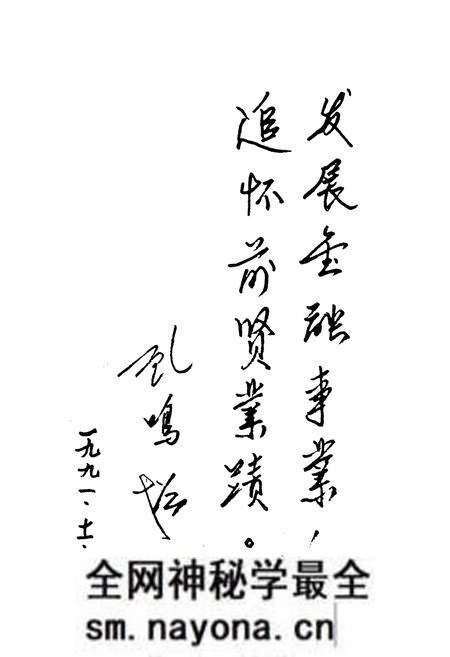 发展金融事業，
追怀前贤業蹟。
鸣
一九九一.十一.
全网神秘学最全
sm.nayona.cn